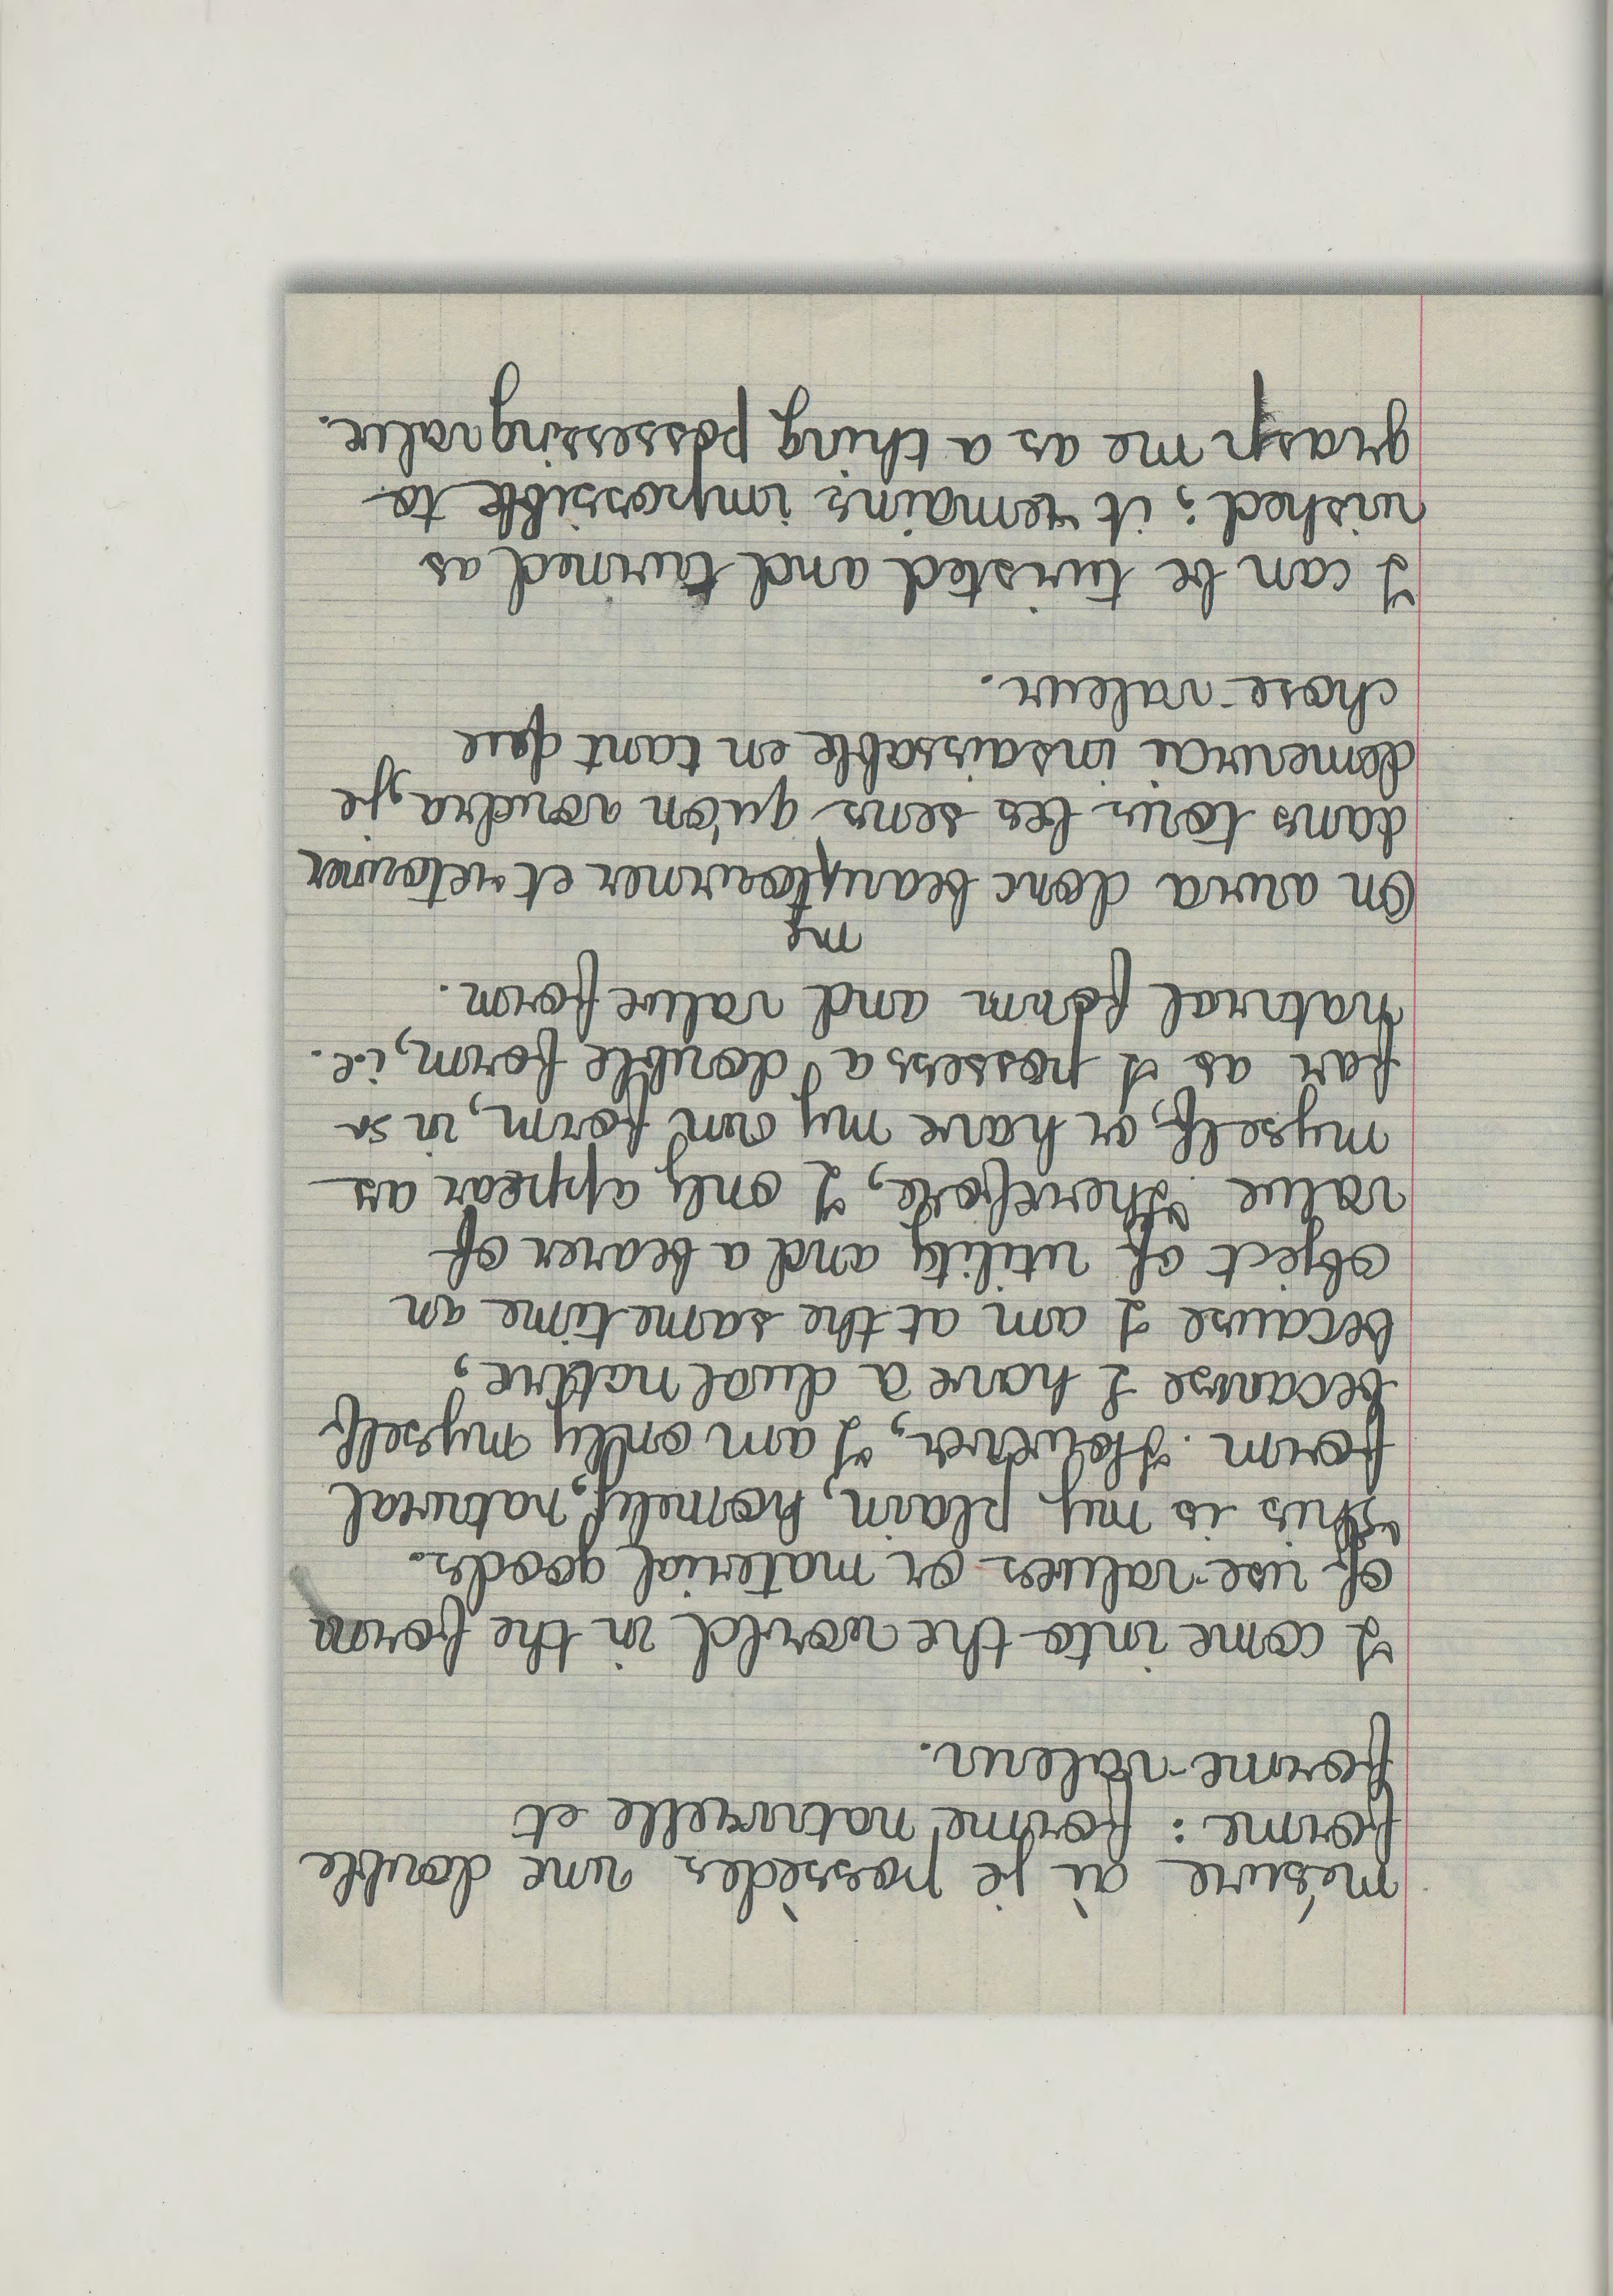 mésure où je possèdes une double
forme : forme naturelle et
forme-valeur.
I come into the world in the form
of use-values or material goods.
This is my plain, homely, natural
form. However, I am only myself
because I have a dual nature,
because I am at the same time an
object of utility and a bearer of
value. Therefore, I only appear as
myself, or have my own form, in so
far as I possess a double form, i.e.
natural form and value form.
me
On aura donc beau tourner et retourner
dans tous les sens qu'on voudra, je
demeurai insaisissable en tant que
chose-valeur.
I can be twisted and turned as
wished; it remains impossible to
grasp me as a thing possessing value.